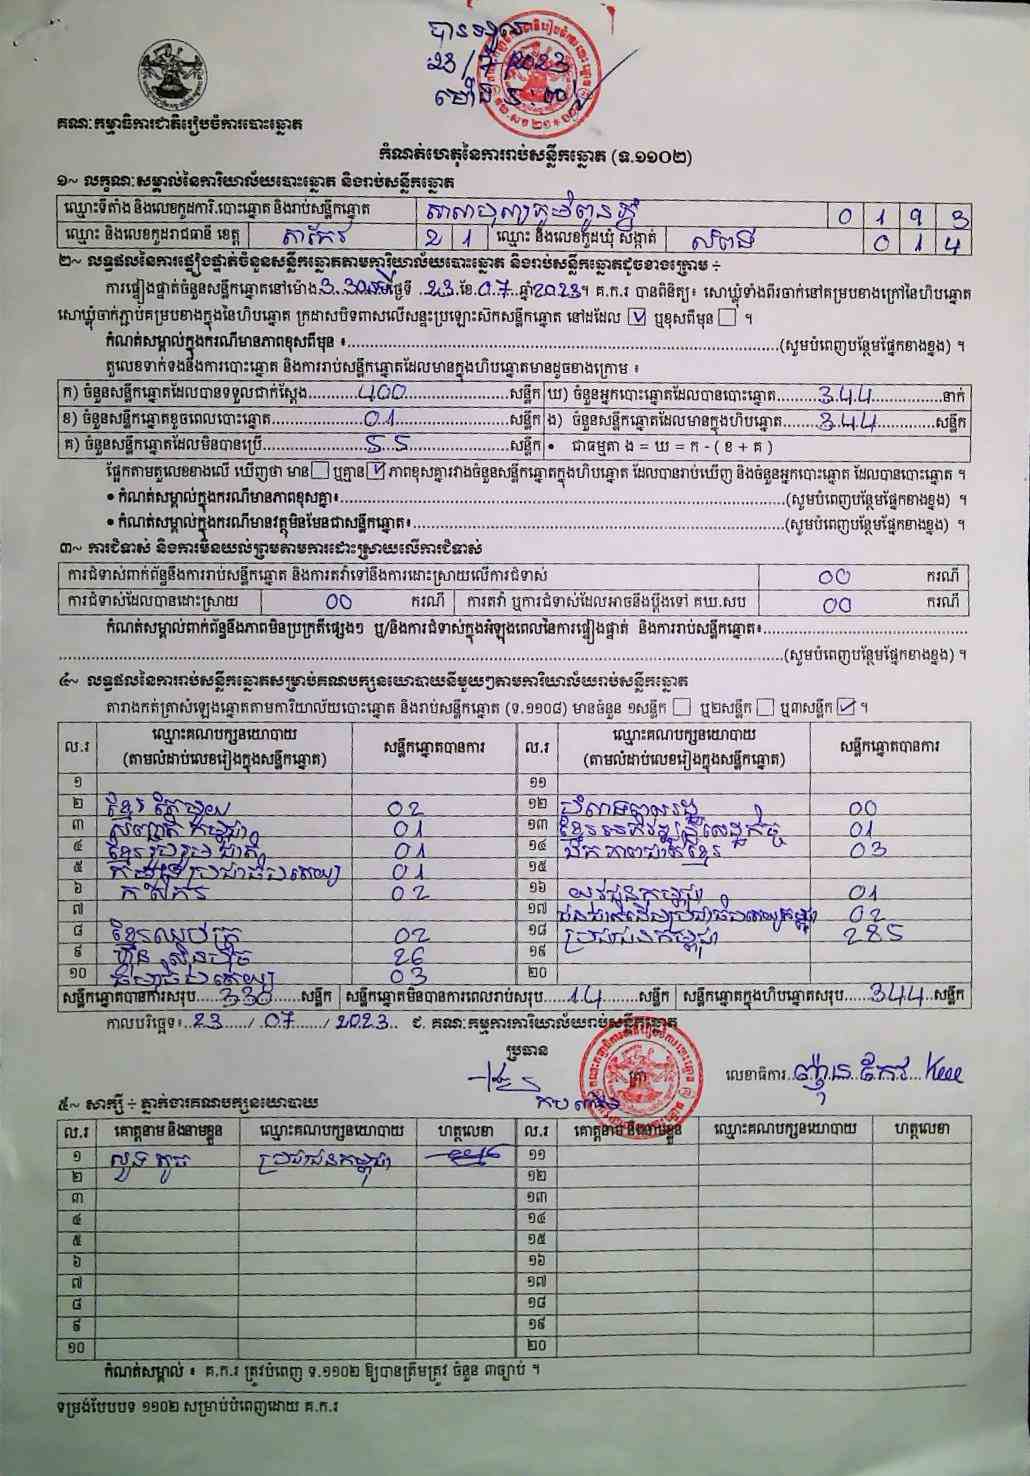 បានទទួល
23/7/2023
ម៉ោង
គណៈកម្មាធិការជាតិរៀបចំការបោះឆ្នោត
កំណត់ហេតុនៃការរាប់សន្លឹកឆ្នោត (ទ.១១០២)
១~ លក្ខណៈសម្គាល់នៃការិយាល័យបោះឆ្នោត និងរាប់សន្លឹកឆ្នោត
ឈ្មោះទីតាំង និងលេខកូដការិ.បោះឆ្នោត និងរាប់សន្លឹកឆ្នោត 0 1 9 3
ឈ្មោះ និងលេខកូដរាជធានី ខេត្ត តាកែវ 2 1 ឈ្មោះ និងលេខកូដឃុំ សង្កាត់ 0 1 4
២~ លទ្ធផលនៃការផ្ទៀងផ្ទាត់ចំនួនសន្លឹកឆ្នោតតាមការិយាល័យបោះឆ្នោត និងរាប់សន្លឹកឆ្នោតដូចខាងក្រោម ÷
ការផ្ទៀងផ្ទាត់ចំនួនសន្លឹកឆ្នោតនៅម៉ោង 3:30 ថ្ងៃទី 23 ខែ 07 ឆ្នាំ 2023។ គ.ក.រ បានពិនិត្យ៖ សោឃ្លុំទាំងពីរចាក់នៅគម្របខាងក្រៅនៃហិបឆ្នោត
សោឃ្លុំចាក់ភ្ជាប់គម្របខាងក្នុងនៃហិបឆ្នោត ក្រដាសបិទពាសលើសន្ទះប្រឡោះស៊កសន្លឹកឆ្នោត នៅដដែល ☑ ឬខុសពីមុន ☐ ។
កំណត់សម្គាល់ក្នុងករណីមានភាពខុសពីមុន ៖ (សូមបំពេញបន្ថែមផ្នែកខាងខ្នង) ។
តួលេខទាក់ទងនឹងការបោះឆ្នោត និងការរាប់សន្លឹកឆ្នោតដែលមានក្នុងហិបឆ្នោតមានដូចខាងក្រោម ៖
ក) ចំនួនសន្លឹកឆ្នោតដែលបានទទួលជាក់ស្តែង 400 សន្លឹក ឃ) ចំនួនអ្នកបោះឆ្នោតដែលបានបោះឆ្នោត 344 នាក់
ខ) ចំនួនសន្លឹកឆ្នោតខូចពេលបោះឆ្នោត 01 សន្លឹក ង) ចំនួនសន្លឹកឆ្នោតដែលមានក្នុងហិបឆ្នោត 344 សន្លឹក
គ) ចំនួនសន្លឹកឆ្នោតដែលមិនបានប្រើ 55 សន្លឹក • ជាធម្មតា ង = ឃ = ក - ( ខ + គ )
ផ្អែកតាមតួលេខខាងលើ ឃើញថា មាន ☐ ឬគ្មាន ☑ ភាពខុសគ្នារវាងចំនួនសន្លឹកឆ្នោតក្នុងហិបឆ្នោត ដែលបានរាប់ឃើញ និងចំនួនអ្នកបោះឆ្នោត ដែលបានបោះឆ្នោត ។
• កំណត់សម្គាល់ក្នុងករណីមានភាពខុសគ្នា៖ (សូមបំពេញបន្ថែមផ្នែកខាងខ្នង) ។
• កំណត់សម្គាល់ក្នុងករណីមានវត្ថុមិនមែនជាសន្លឹកឆ្នោត៖ (សូមបំពេញបន្ថែមផ្នែកខាងខ្នង) ។
៣~ ការជំទាស់ និងការមិនយល់ព្រមតាមការដោះស្រាយលើការជំទាស់
ការជំទាស់ពាក់ព័ន្ធនឹងការរាប់សន្លឹកឆ្នោត និងការតវ៉ាទៅនឹងការដោះស្រាយលើការជំទាស់ 00 ករណី
ការជំទាស់ដែលបានដោះស្រាយ 00 ករណី ការតវ៉ា ឬការជំទាស់ដែលអាចនឹងប្តឹងទៅ គឃ.សប 00 ករណី
កំណត់សម្គាល់ពាក់ព័ន្ធនឹងភាពមិនប្រក្រតីផ្សេងៗ ឬ/និងការជំទាស់ក្នុងអំឡុងពេលនៃការផ្ទៀងផ្ទាត់ និងការរាប់សន្លឹកឆ្នោត៖
(សូមបំពេញបន្ថែមផ្នែកខាងខ្នង) ។
៤~ លទ្ធផលនៃការរាប់សន្លឹកឆ្នោតសម្រាប់គណបក្សនយោបាយនីមួយៗតាមការិយាល័យរាប់សន្លឹកឆ្នោត
តារាងកត់ត្រាសំឡេងឆ្នោតតាមការិយាល័យបោះឆ្នោត និងរាប់សន្លឹកឆ្នោត (ទ.១១០៨) មានចំនួន ១សន្លឹក ☐ ឬ២សន្លឹក ☐ ឬ៣សន្លឹក ☑ ។
ល.រ ឈ្មោះគណបក្សនយោបាយ (តាមលំដាប់លេខរៀងក្នុងសន្លឹកឆ្នោត) សន្លឹកឆ្នោតបានការ ល.រ ឈ្មោះគណបក្សនយោបាយ (តាមលំដាប់លេខរៀងក្នុងសន្លឹកឆ្នោត) សន្លឹកឆ្នោតបានការ
១ ១១
២ ខ្មែរតែមួយ 02 ១២ 00
៣ 01 ១៣ ខ្មែរអភិវឌ្ឍន៍សេដ្ឋកិច្ច 01
៤ ខ្មែររួបរួមជាតិ 01 ១៤ ឯកភាពជាតិខ្មែរ 03
៥ 01 ១៥
៦ កសិករ 02 ១៦ យុវជនកម្ពុជា 01
៧ ១៧ 02
៨ ខ្មែរឈប់ក្រ 02 ១៨ ប្រជាជនកម្ពុជា 285
៩ ហ៊្វុនស៊ិនប៉ិច 26 ១៩
១០ 03 ២០
សន្លឹកឆ្នោតបានការសរុប 330 សន្លឹក សន្លឹកឆ្នោតមិនបានការពេលរាប់សរុប 14 សន្លឹក សន្លឹកឆ្នោតក្នុងហិបឆ្នោតសរុប 344 សន្លឹក
កាលបរិច្ឆេទ៖ 23 / 07 / 2023 ជ. គណៈកម្មការការិយាល័យរាប់សន្លឹកឆ្នោត
ប្រធាន
លេខាធិការ
៥~ សាក្សី ÷ ភ្នាក់ងារគណបក្សនយោបាយ
ល.រ គោត្តនាម និងនាមខ្លួន ឈ្មោះគណបក្សនយោបាយ ហត្ថលេខា ល.រ គោត្តនាម និងនាមខ្លួន ឈ្មោះគណបក្សនយោបាយ ហត្ថលេខា
១ ប្រជាជនកម្ពុជា ១១
២ ១២
៣ ១៣
៤ ១៤
៥ ១៥
៦ ១៦
៧ ១៧
៨ ១៨
៩ ១៩
១០ ២០
កំណត់សម្គាល់ ៖ គ.ក.រ ត្រូវបំពេញ ទ.១១០២ ឱ្យបានត្រឹមត្រូវ ចំនួន ៣ច្បាប់ ។
ទម្រង់បែបបទ ១១០២ សម្រាប់បំពេញដោយ គ.ក.រ